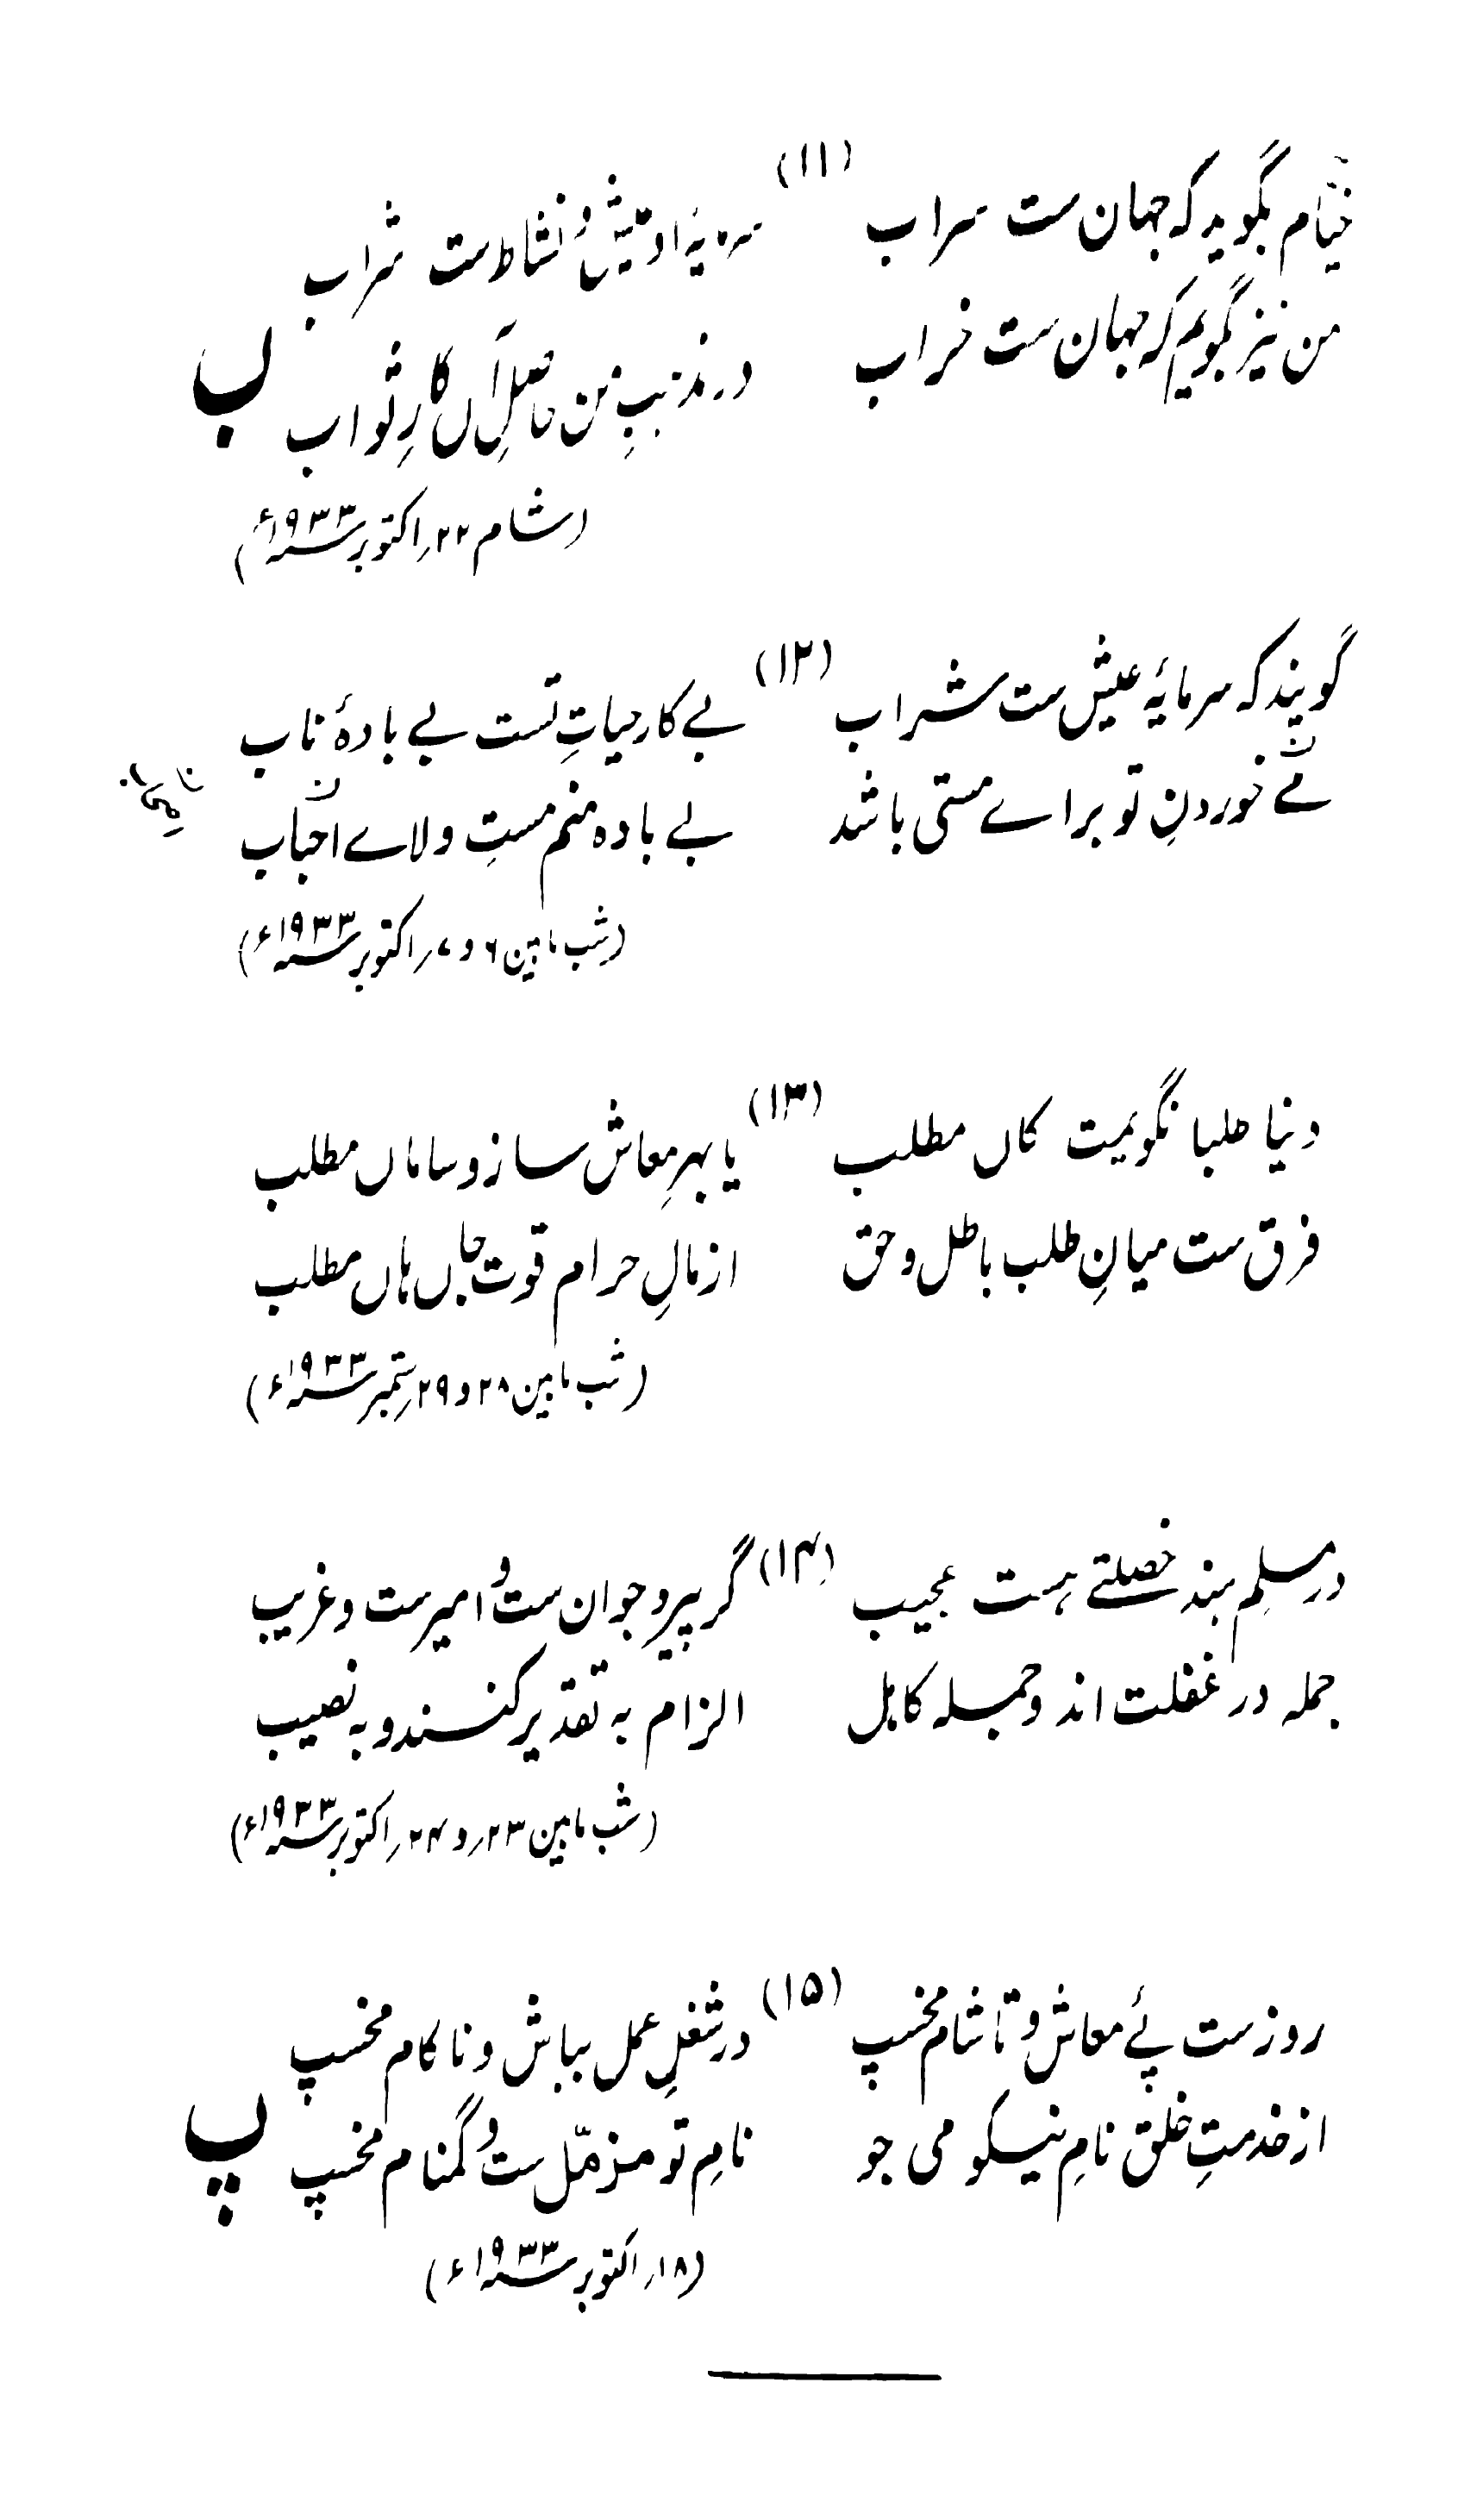 (۱۱)
خیّام بگوید که جہان ست سراب سرمایهٔ عیش و نشاط ست شراب
من نیز بگویم که جہان ست خراب در مذہبِ من مآلِ کارِ ثواب
ب
(شام ۲۲؍اکتوبر ۱۹۳۳ء)
(۱۲)
گویند که سرمایهٔ عیش ست شراب بے کار حیاتِ تست بے بادهٔ ناب
مَے خوردنِ تو براے مستی باشد بے باده منم مستِ ولاے احباب
(شب مابین ۶ و ۷؍اکتوبر ۱۹۳۳ء)
(۱۳)
دنیا طلبا نگویمت کاں مطلب یا بہرِ معاش ساز و ساماں مطلب
فرق ست میانِ طلب باطل و حق از مالِ حرام قوتِ جاں ہاں مطلب
(شب مابین ۲۸ و ۲۹؍ستمبر ۱۹۳۳ء)
(۱۴)
در مسلمِ ہند خصلتے ہست عجیب گر پیر و جوان ست و امیر ست و غریب
جمله در غفلت اند و جمله کاہل الزام به تقدیر کنند و به نصیب
(شب مابین ۲۳ و ۲۴؍اکتوبر ۱۹۳۳ء)
(۱۵)
روز ست پئے معاش و تا شام مخسپ در شغلِ عمل بباش و ناکام مخسپ
از خدمتِ خلق نامِ نیکو می جو نامِ تو مزمّل ست و گمنام مخسپ
پ
(۱۸؍اکتوبر ۱۹۳۳ء)